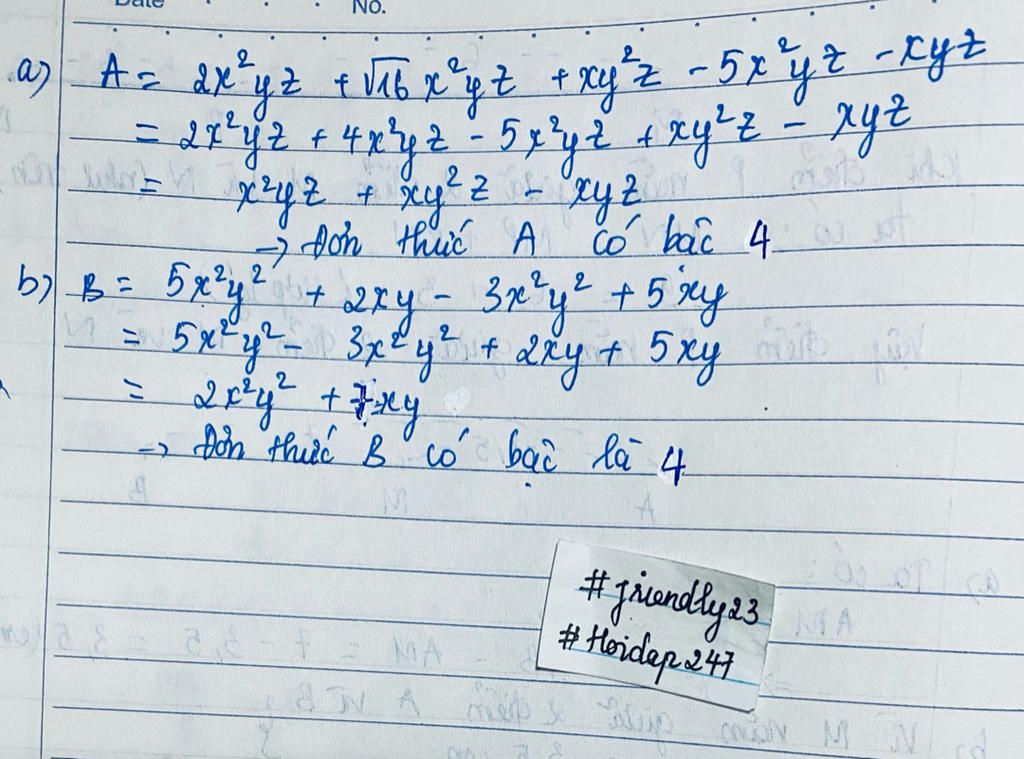 Date No.
a) A = 2x²yz + √16 x²yz + xy²z - 5x²yz - xyz
= 2x²yz + 4x²yz - 5x²yz + xy²z - xyz
= x²yz + xy²z - xyz
→ Đơn thức A có bậc 4
b) B = 5x²y² + 2xy - 3x²y² + 5xy
= 5x²y² - 3x²y² + 2xy + 5xy
= 2x²y² + 7xy
→ Đơn thức B có bậc là 4
#friendly23
#Hoidap247